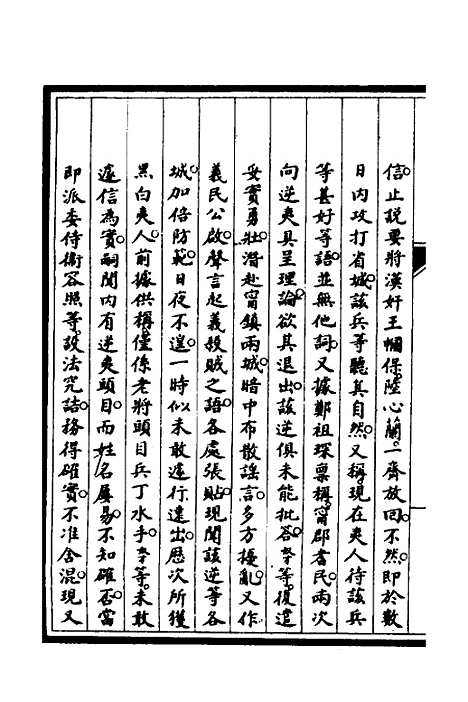 信止說要將漢奸王幗保陸心蘭一齊放回不然即於數
日內攻打省城該兵等聽其自然又稱現在夷人待該兵
等甚好等語並無他詞又據鄭祖琛稟稱甯郡耆民兩次
向逆夷具呈理論欲其退出該逆俱未能批答等等復遣
妥實勇壯潛赴甯鎮兩城暗中布散謠言多方擾亂又作
義民公啟聲言起義殺賊之語各處張貼現聞該逆等各
城加倍防範日夜不遑一時似未敢遽行遠出歷次所獲
黑白夷人前據供稱僅係老將頭目兵丁水手等等未敢
遽信為實嗣聞內有逆夷頭目而姓名屢易不知確否當
即派委侍衛容照等設法究詰務得確實不准含混現又